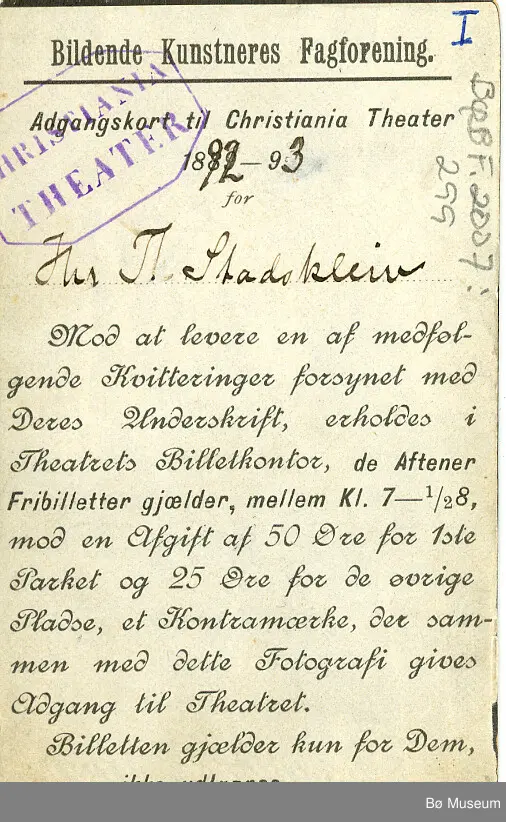 I
Bildende Kunstneres Fagforening.
CHRISTIANIA
THEATER
Adgangskort til Christiania Theater
1892-93
for
Hr Th. Stadskleiv
Mod at levere en af medføl-
gende Kvitteringer forsynet med
Deres Underskrift, erholdes i
Theatrets Billetkontor, de Aftener
Fribilletter gjælder, mellem Kl. 7—1/28,
mod en Afgift af 50 Øre for 1ste
Parket og 25 Øre for de øvrige
Pladse, et Kontramærke, der sam-
men med dette Fotografi gives
Adgang til Theatret.
Billetten gjælder kun for Dem,
BøB F. 2007:
299
Bø Museum